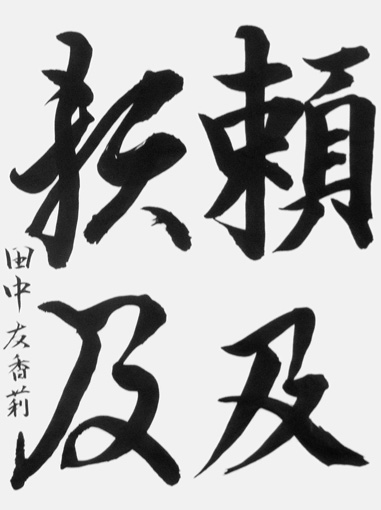 頼及
頼及
田中友香莉